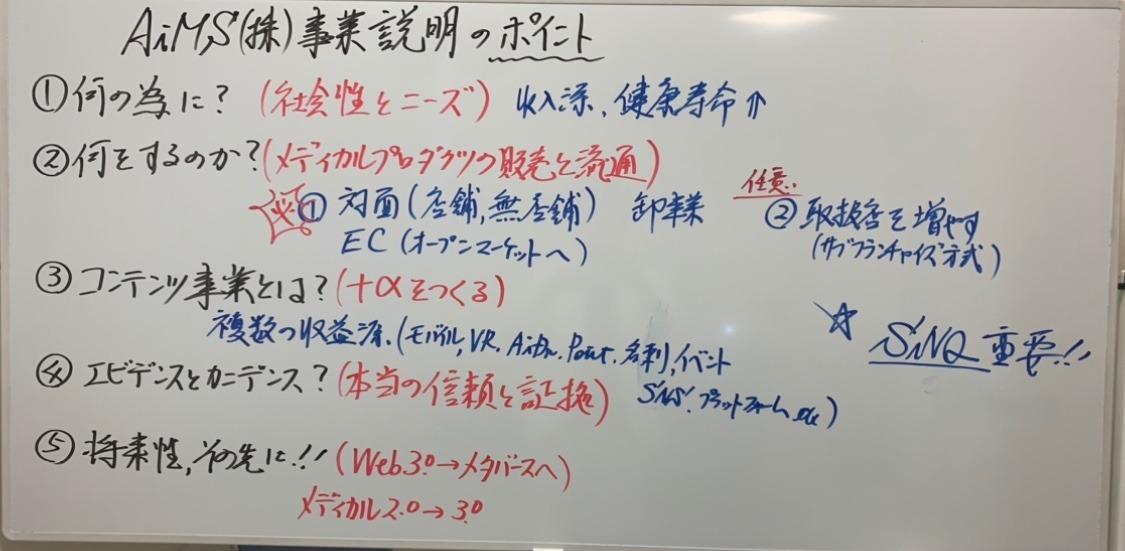 AiMS(株)事業説明のポイント
①何の為に？(社会性とニーズ) 収入源、健康寿命↑
②何をするのか？(メディカルプロダクツの販売と流通)
①対面(店舗,無店舗) 卸事業
EC(オープンマーケットへ)
任意
②取扱店を増やす
(サブフランチャイズ方式)
③コンテンツ事業とは？(+αをつくる)
複数の収益源.(モバイル,VR. 名刺,イベント
SNS.プラットフォーム etc)
☆ SiNQ重要!!
④エビデンスとカニデンス？(本当の信頼と証拠)
⑤将来性,その先に!!(Web3.0→メタバースへ)
メディカル2.0→3.0